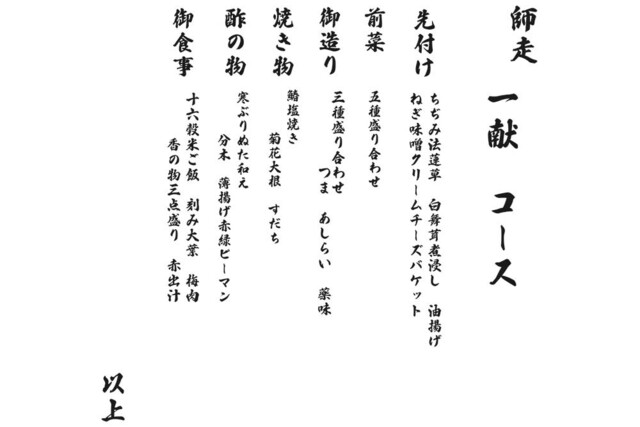 師走
一献 コース
先付け
ちぢみ法蓮草 白舞茸煮浸し 油揚げ
ねぎ味噌クリームチーズバケット
前菜
五種盛り合わせ
御造り
三種盛り合わせ
つま あしらい 薬味
焼き物
鰆塩焼き
菊花大根 すだち
酢の物
寒ぶりぬた和え
分木 薄揚げ赤緑ピーマン
御食事
十六穀米ご飯 刻み大葉 梅肉
香の物三点盛り 赤出汁
以上